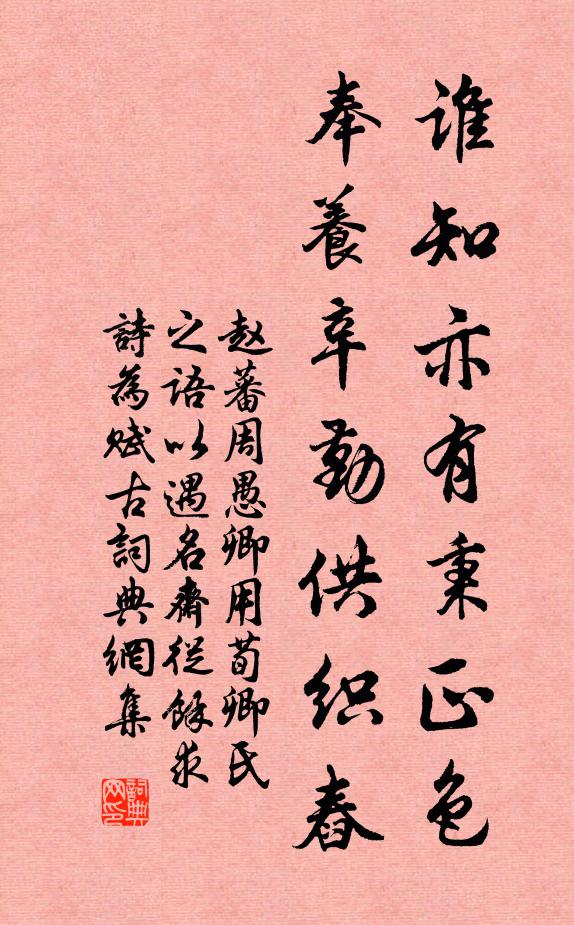 誰知亦有秉正色
奉養辛勤供織舂
赵蕃周愚卿用荀卿氏
之語以遇名齋從餘求
詩為賦古詞典網集
詞典
网印